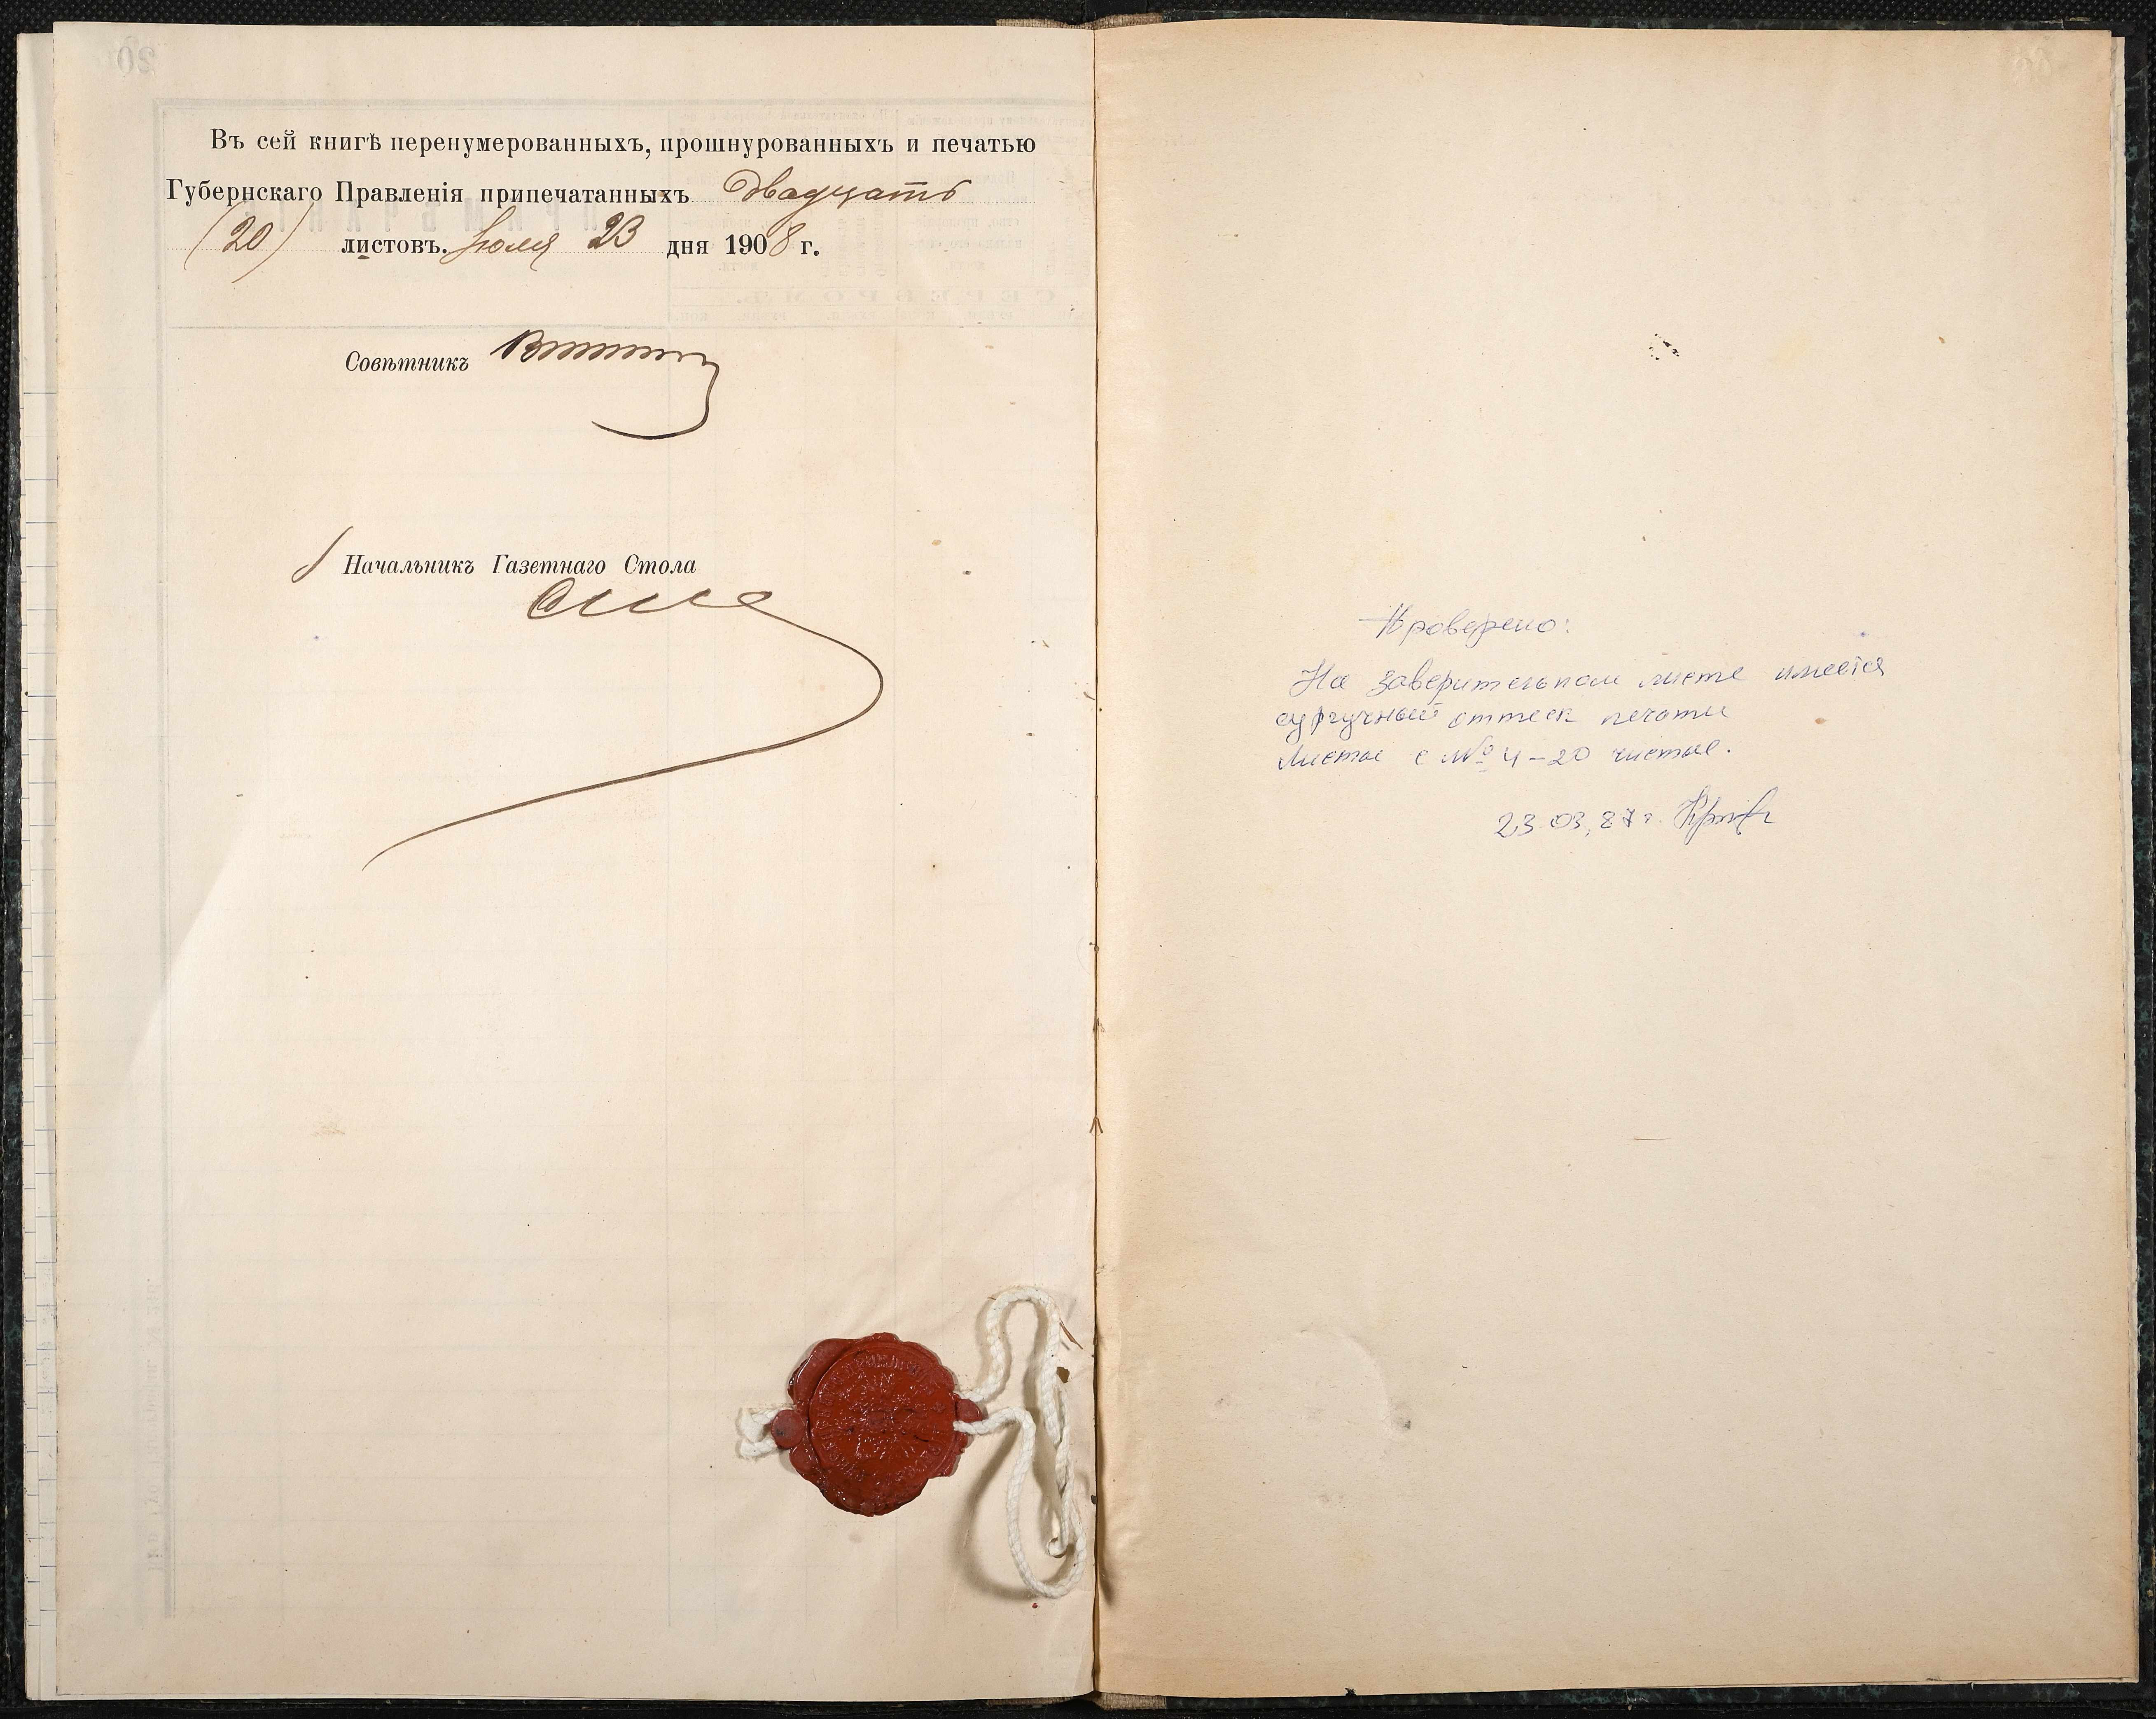 Въ сей книгѣ перенумерованныхъ, прошнурованныхъ и печатью
Губернскаго Правленія припечатанныхъ двадцать
(20) листовъ. Іюля 23 дня 1908 г.
Совѣтникъ
Начальникъ Газетнаго Стола
Проверено:
На заверительном листе имеется
сургучный оттиск печати
Листы с № 4–20 чистые.
23.03.87 г.